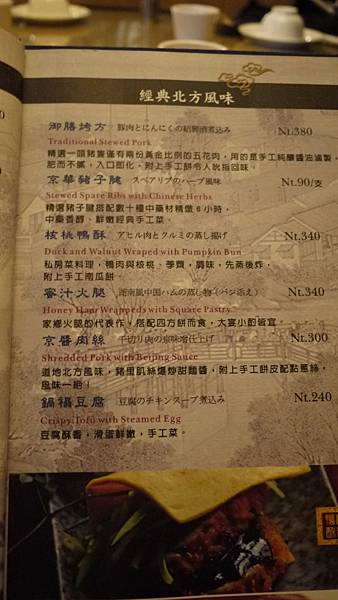 經典北方風味
御膳烤方 豚肉とにんにくの紹興酒煮込み Nt.380
Traditional Stewed Pork
精選一頭豬隻僅有兩份黃金比例的五花肉，用的是手工純釀醬油滷製，
肥而不膩，入口即化，附上手工餅令人玩指回味。
京華豬子腱 スペアリブのハーブ風味 Nt.90/支
Stewed Spare Ribs with Chinese Herbs
精選豬子腱搭配數十種中藥材精燉6小時，
中藥香醇、鮮嫩經典手工菜。
核桃鴨酥 アヒル肉とクルミの蒸し揚げ Nt.340
Duck and Walnut Wraped with Pumpkin Bun
私房菜料理，鴨肉與核桃、荸薺，調味，先蒸後炸，
附上手工南瓜餅
蜜汁火腿 湖南風中国ハムの蒸し物(パン添え) Nt.340
Honey Ham Wrapped with Square Pastry
家鄉火腿的代表作，搭配四方餅而食，大宴小酌皆宜。
京醬肉絲 千切り肉の京味噌仕上げ Nt.300
Shredded Pork with Beijing Sauce
道地北方風味，豬里肌絲爆炒甜麵醬，附上手工餅皮配點蔥絲，
風味一絕！
鍋摺豆腐 豆腐のチキンスープ煮込み Nt.240
Crispy Tofu with Steamed Egg
豆腐酥香，滑蛋鮮嫩，手工菜。